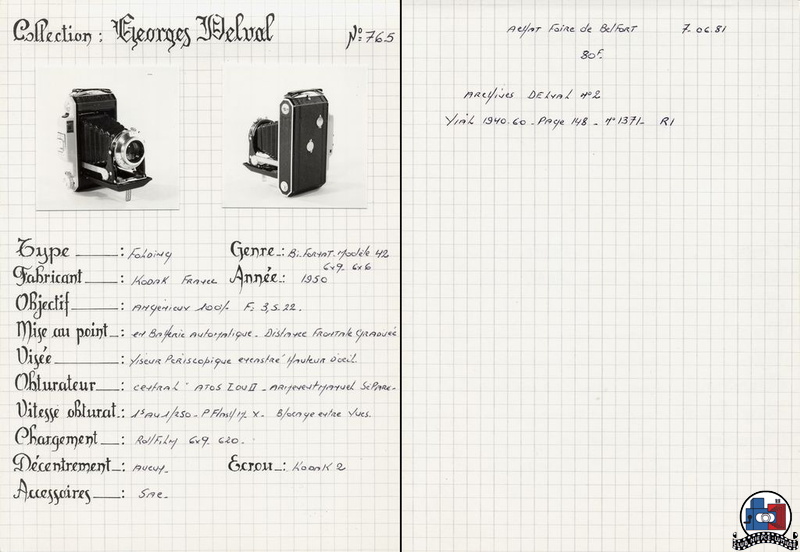 Collection : Georges Delval
N° = 765
Type : Folding
Genre : Bi.Format. Modèle 42
6x9 6x6
Fabricant : Kodak France
Année : 1950
Objectif : Angénieux 100/- F. 3,5.22.
Mise au point : en Batterie Automatique - Distance Frontale Graduée
Visée : Viseur Périscopique encastré Hauteur d'œil.
Obturateur : central - Atos I ou II - Armement Manuel Séparé -
Vitesse obturat. : 1s Au 1/250 - P. Flash/M. X - Blocage entre Vues.
Chargement : Roll Film 6x9 620 -
Décentrement : Aucun -
Ecrou : Kodak 2
Accessoires : Sac -
Achat Foire de Belfort 7.06.81
80F.
Archives DELVAL n°2
Vial 1940.60 - Page 148 - n° 1371 - R1